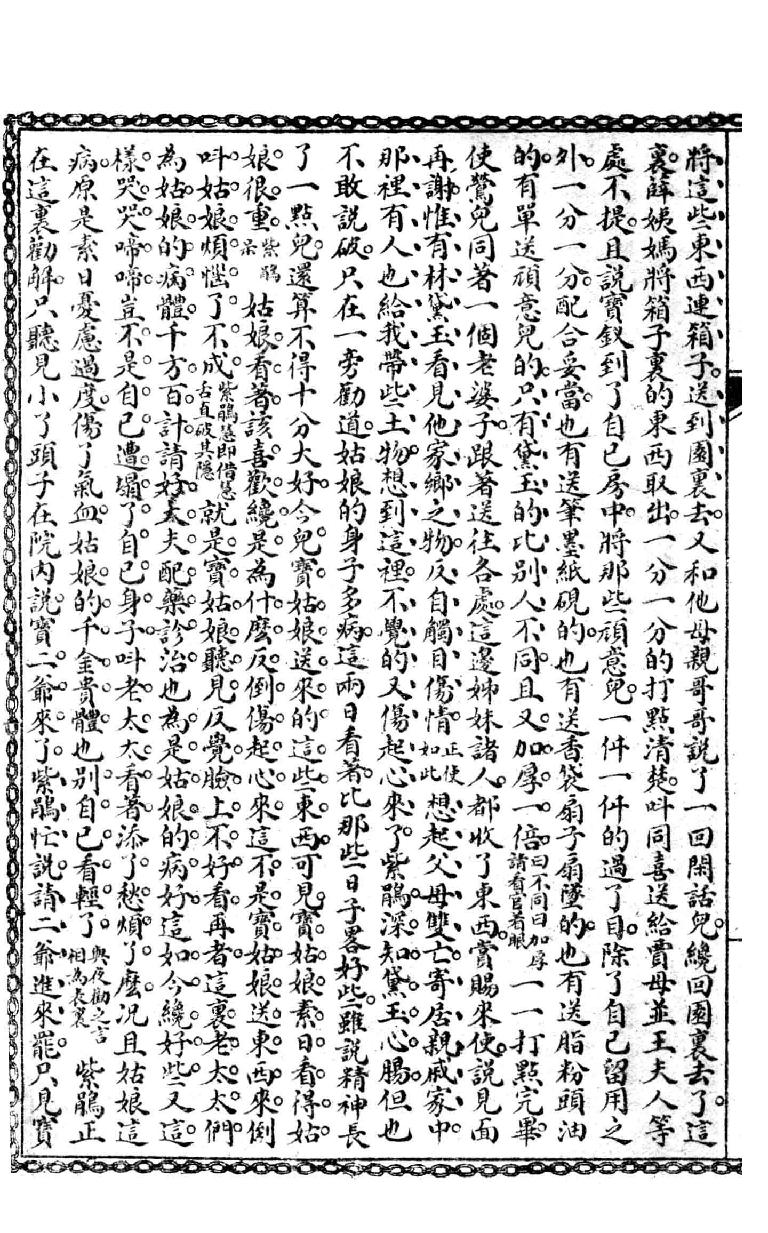 將這些東西連箱子送到園裏去又和他母親哥哥說了一回閑話兒纔回園裏去了這
裏薛姨媽將箱子裏的東西取出一分一分的打點清楚叫同喜送給賈母並王夫人等
處不提且說寶釵到了自己房中將那些頑意兒一件一件的過了目除了自己留用之
外一分一分配合妥當也有送筆墨紙硯的也有送香袋扇子扇墜的也有送脂粉頭油
的有單送頑意兒的只有黛玉的比別人不同且又加厚一倍曰不同曰加厚請看官着眼一一打點完畢
使鶯兒同著一個老婆子跟著送往各處這邊姊妹諸人都收了東西賞賜來使說見面
再謝惟有林黛玉看見他家鄉之物反自觸目傷情正使如此想起父母雙亡寄居親戚家中
那裡有人也給我帶些土物想到這裡不覺的又傷起心來了紫鵑深知黛玉心腸但也
不敢說破只在一旁勸道姑娘的身子多病這兩日看著比那些日子畧好些雖說精神長
了一點兒還算不得十分大好今兒寶姑娘送來的這些東西可見寶姑娘素日看得姑
娘很重紫鵑呆姑娘看著該喜歡纔是為什麼反倒傷起心來這不是寶姑娘送東西來倒
叫姑娘煩惱了不成紫鵑慧即借慧舌直破其隱就是寶姑娘聽見反覺臉上不好看再者這裏老太太們
為姑娘的病體千方百計請好大夫配藥診治也為是姑娘的病好這如今纔好些又這
樣哭哭啼啼豈不是自己遭塌了自己身子叫老太太看著添了愁煩了麼况且姑娘這
病原是素日憂慮過度傷了氣血姑娘的千金貴體也別自己看輕了與夜勸之言相為表裏紫鵑正
在這裏勸解只聽見小丫頭子在院內說寶二爺來了紫鵑忙說請二爺進來罷只見寶